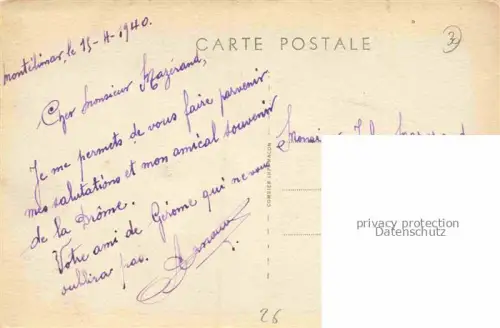 Montélimar, le 15-4-1940.
CARTE POSTALE
3
Cher Monsieur Mazérand,
Je me permets de vous faire parvenir
mes salutations et mon amical souvenir
de la Drôme.
Votre ami de Gérome qui ne vous
oublira pas.
Monsieur
privacy protection
Datenschutz
26